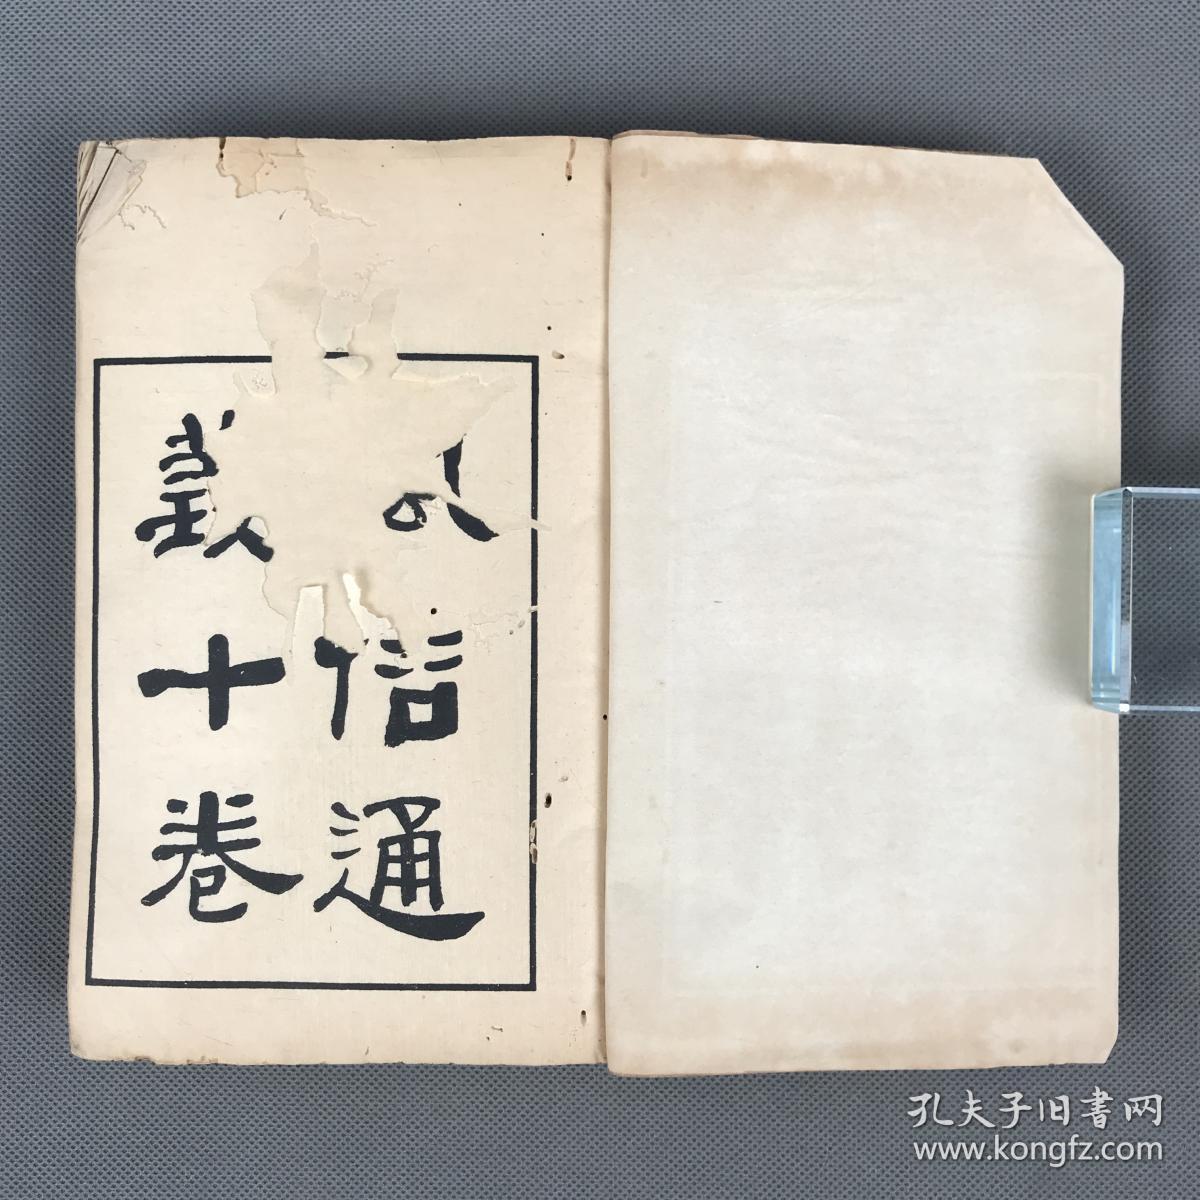 信通
義十卷
孔夫子旧書网
www.kongfz.com